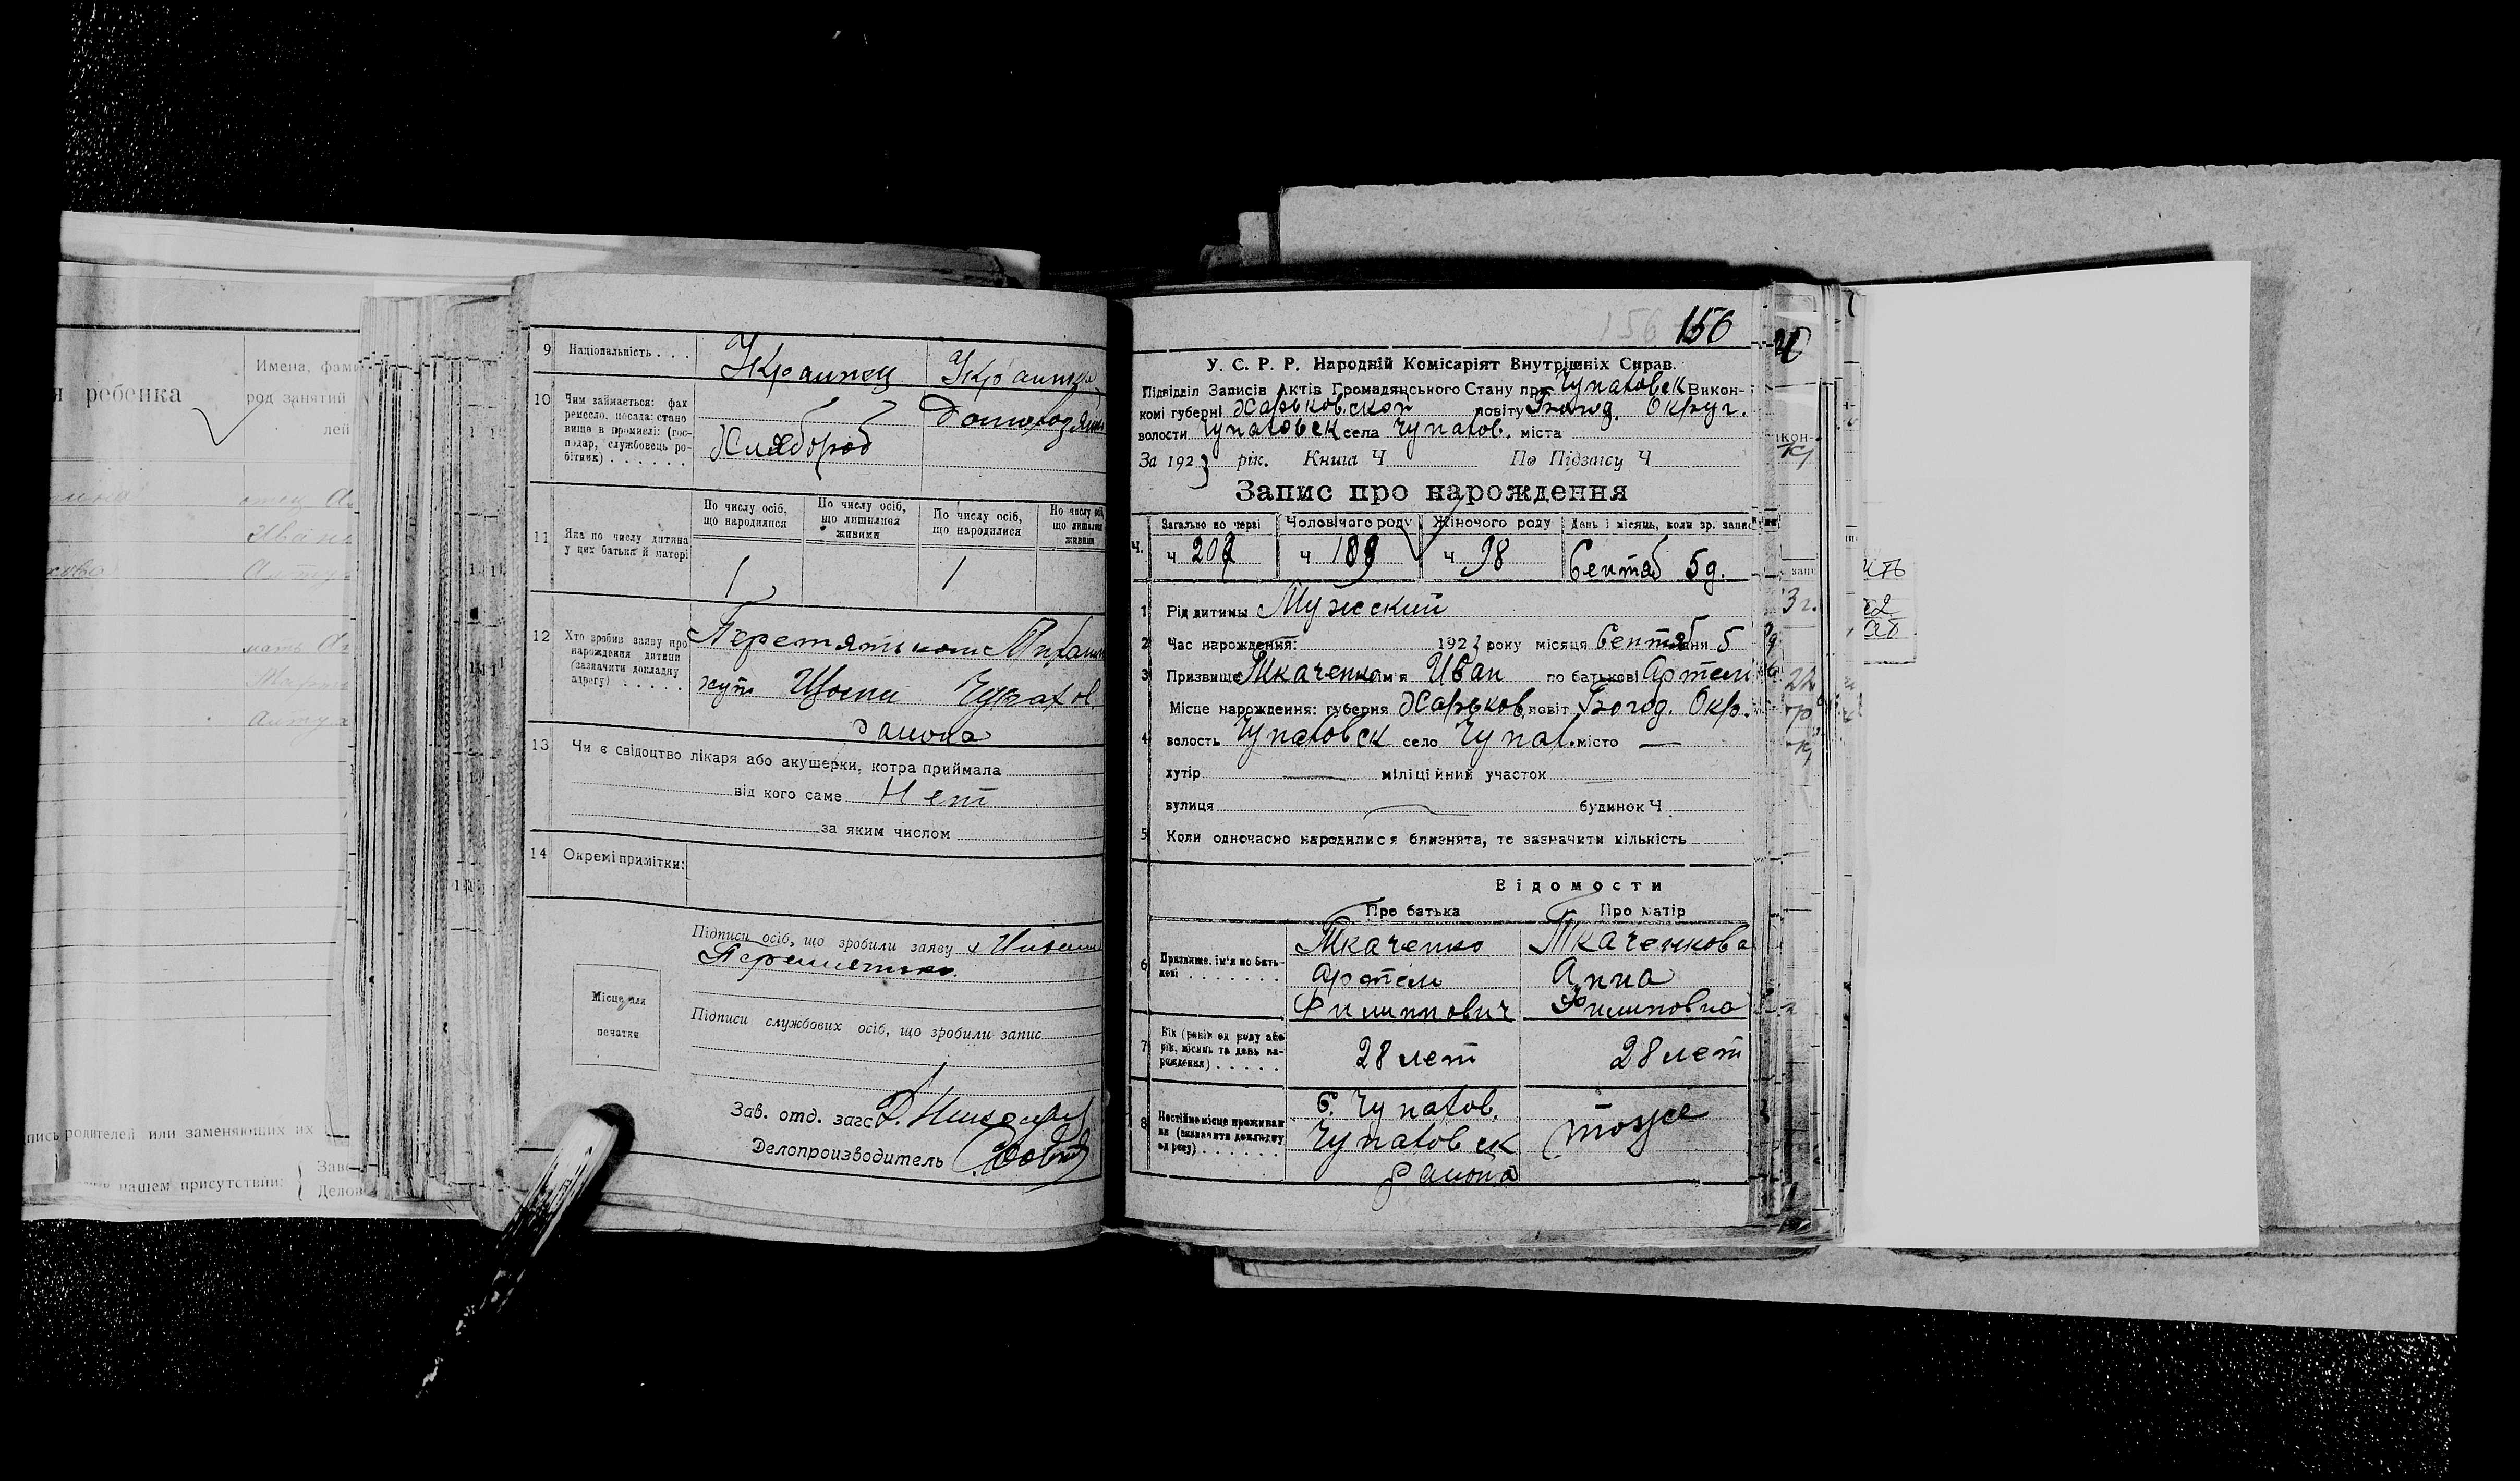 я ребенка
Имена, фами
род занятий
лей
мать
пись родителей или заменяющих их
нашем присутствии:
Заве
Делов
9 Національність . . . Украинец Украинка
10 Чим займається: фах
ремесло, посада: стано
вище в промислі: (гос-
подар, службовець ро-
бітник) . . . . . .
Хлебороб
11 Яка по числу дитина
у цих батька й матері
По числу осіб,
що народилися
По числу осіб,
що лишилися
живими
По числу осіб,
що народилися
По числу осіб
що лишили
живими
1 1
12 Хто зробив заяву про
нарождення дитини
(зазначити докладну
адресу) . . . . .
хут
района
13 Чи є свідоцтво лікаря або акушерки, котра приймала
від кого саме Нет
за яким числом
14 Окремі примітки:
Підписи осіб, що зробили заяву
Місце для
печатки
Підписи службових осіб, що зробили запис
Зав. отд. загс
Делопроизводитель
156 156
У. С. Р. Р. Народній Комісаріят Внутрішніх Справ.
Підвідділ Записів Актів Громадянського Стану при Чупаховск Викон-
комі губерні Харьковской повіту Богод. Округ.
волости Чупаховск села Чупахов. міста
За 1923 рік. Книга Ч По Підзапису Ч
Запис про нарождення
Загально по черзі Чоловічого роду Жіночого роду День і місяць, коли зр. запис
ч. ч 207 ч 109 ч 98 Сентяб 5д.
1 Рід дитини Мужеский
2 Час нарождення: 1923 року місяця Сентяб дня 5
3 Призвище Ткаченко ім'я Иван по батькові Артем
Місце нарождення: губерня Харьков. повіт Богод. Окр.
4 волость Чупаховск село Чупах. місто —
хутір — міліційний участок
вулиця — будинок Ч
5 Коли одночасно народилися близнята, то зазначити кількість
Відомости
Про батька Про матір
6 Призвище, ім'я по бать-
кові . . . . . . . .
Ткаченко Ткаченкова
Артем Анна
Филиппович Филиповна
7 Вік (років од роду або
рік, місяць та день на-
рождення) . . . . .
28 лет 28 лет
8 Постійне місце проживан
ня (зазначити докладну
адресу) . . . . . . .
С. Чупахов.
Чупаховск тоже
района